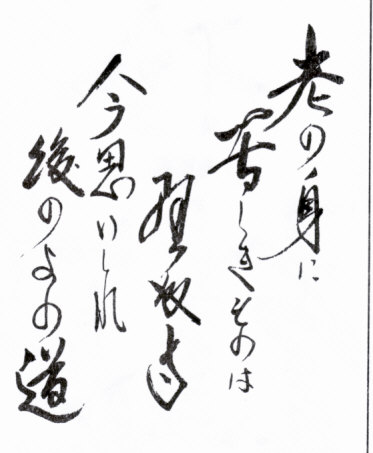 老の身に
苦しきものは
野坂寺
今思いしれ
後のよの道